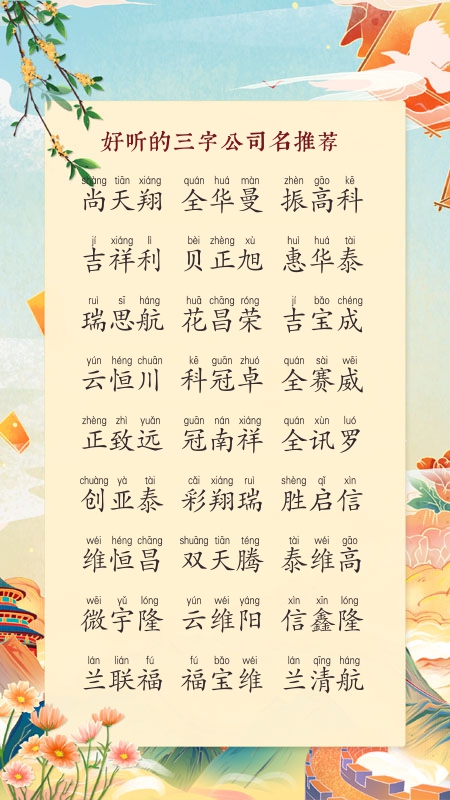 好听的三字公司名推荐
shàng tiān xiáng quán huá màn zhèn gāo kē
尚天翔 全华曼 振高科
jí xiáng lì bèi zhèng xù huì huá tài
吉祥利 贝正旭 惠华泰
ruì sī háng huā chāng róng jí bǎo chéng
瑞思航 花昌荣 吉宝成
yún héng chuān kē guān zhuó quán sài wēi
云恒川 科冠卓 全赛威
zhèng zhì yuǎn guān nán xiáng quán xùn luó
正致远 冠南祥 全讯罗
chuàng yà tài cǎi xiáng ruì shèng qǐ xìn
创亚泰 彩翔瑞 胜启信
wéi héng chāng shuāng tiān téng tài wéi gāo
维恒昌 双天腾 泰维高
wēi yǔ lóng yún wéi yáng xìn xīn lóng
微宇隆 云维阳 信鑫隆
lán lián fú fú bǎo wéi lán qīng háng
兰联福 福宝维 兰清航